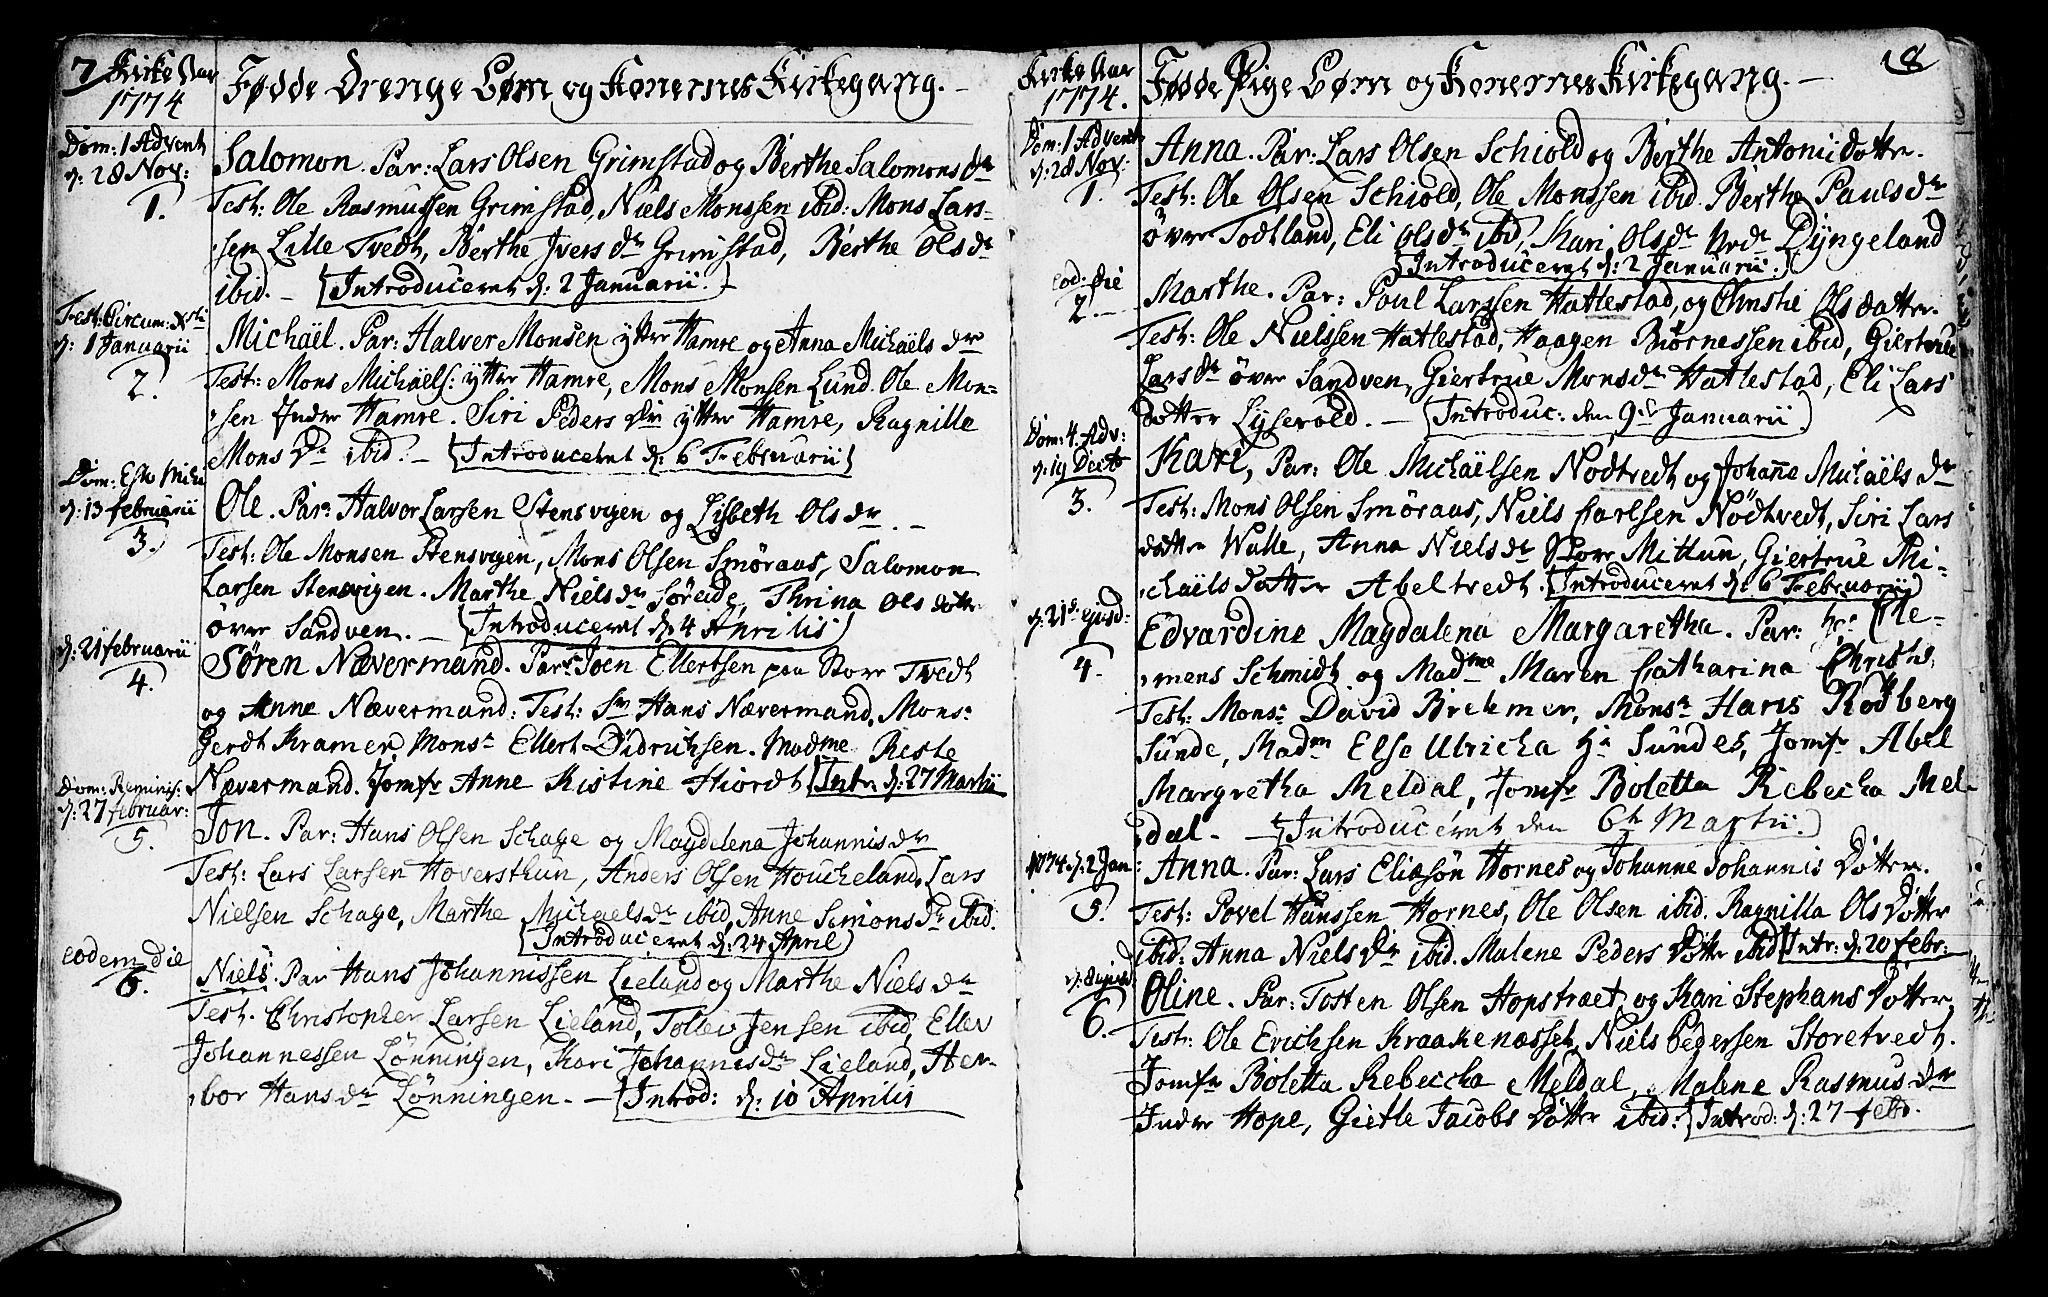 7 Kirke Aar
1774
Fødde Drenge Børn og Konernes Kirkegang. –
Dom: 1 Advent
d: 28 Nov:
1.
Salomon. Par: Lars Olsen Grimstad og Berthe Salomons dr
Test: Ole Rasmussen Grimstad, Niels Monssen ibid: Mons Lars-
sen Lille Tvedt, Berthe Ivers dr Grimstad, Berthe Ols dr
ibid. – Introduceret d: 2 Januarii. –
Fest: Circum: Xsti
d: 1 Januarii
2.
Michaël. Par: Halver Monsen ytter Hamre og Anna Michaëls dr
Test: Mons Michaëls: ytter Hamre, Mons Monsen Lund. Ole Mon-
sen Inder Hamre. Siri Peders dr ytter Hamre, Ragnille
Mons dr ibid. – Introduceret d: 6 Februarii
Dom: Esto Mihi
d: 13 februarii
3.
Ole. Par: Halvor Larsen Stensvigen og Lisbeth Ols dr. –
Test: Ole Monsen Stensvigen, Mons Olsen Smöraas, Salomon
Larsen Stensvigen. Marthe Niels dr Søreide, Thrina Ols dotter
över Sandven. – Introduceret d: 4 Aprilis
d: 21 februarii
4.
Søren Nævermand. Par: Joen Ellertsen paa Store Tvedt
og Anne Nævermand: Test: Sr Hans Nævermand, Monsr
Gerdt Kramer, Monsr Ellert Didrichsen. Madme Beste
Nævermand. Jomfr Anne Kistine Hiordt Intr. d: 27 Martii
Dom: Reminis:
d: 27 februar:
5.
Jon. Par: Hans Olsen Schage og Magdelena Johannis dr
Test: Lars Larsen Hoversthun, Anders Olsen Houcheland, Lars
Nielsen Schage, Marthe Michaels dr ibid, Anne Simons dr ibid.
Introduceret d: 24 April
eodem Die
6.
Niels. Par Hans Johannissen Lieland og Marthe Niels dr
Test. Christopher Larsen Lieland, Tollev Jensen ibid, Ellev
Johannessen Lönningen, Kari Johannis dr Lieland, Her-
bor Hans dr Lönningen. – Introd: d: 10 Aprilis
Kirke Aar
1774.
Fødde Pige Børn og Konernes Kirkegang. –
8
Dom: 1 Advent
d: 28 Nov:
1.
Anna. Par: Lars Olsen Schiold og Berthe Antonii dotter.
Test: Ole Olsen Schiold, Ole Monssen ibid. Berthe Pauls dr
över Todtland, Eli Ols dr ibid, Kari Ols dr Nedr Dyngeland
Introduceret d: 2 Januarii.
eod: die
2. –
Marthe. Par: Poul Larssen Hatlestad, og Christie Ols datter.
Test: Ole Nielssen Hatlestad, Haagen Biørnessen ibid, Giertrue
Lars dr över Sandven, Giertrue Mons dr Hatlestad, Eli Lars
dotter Lysevold. – Introduc: den 9de Januarii
Dom: 4. Adv:
d: 19 Decb
3.
Kari, Par: Ole Michaëlsen Nodtvedt og Johanne Michaëls dr
Test: Mons Olsen Smöraas, Niels Carlsen Nödtvedt, Siri Lars
dotter Walle, Anna Niels dr Store Mittun, Giertrue Mi-
chaëls datter Abeltvedt. Introduceret d: 6 Februarii
d: 21de
4.
Edvardine Magdalena Margaretha. Par: hr Cle-
mens Schmidt og Madme Maren Catharina Christi,
Test: Monsr David Brehmer, Monsr Hans Rodberg
Sunde, Madm Else Ulricha Sl Sundes, Jomfr Abel
Margretha Meldal, Jomfr Boletta Rebecha Mel-
dal. – Introduceret den 6te Martii.
1774 d: 2 Jan:
5.
Anna. Par: Lars Eliasön Hornes og Johanne Johannis Dotter.
Test: Povel Hanssen Hornes, Ole Olsen ibid. Ragnilla Ols Dotter
ibid: Anna Niels Dr ibid. Malene Peders Dotter ibid Intr: d: 20 febr:
6.
Oline. Par: Tosten Olsen Hopstræt, og Kari Stephans Dotter,
Test: Ole Erichsen Kraakenæsset, Niels Pedersen Storetvedt.
Jomfr Boletta Rebeccha Meldal, Malene Rasmus dr
Inder Hope, Gietle Jacobs Dotter ibid: Introd: d: 27 febr.